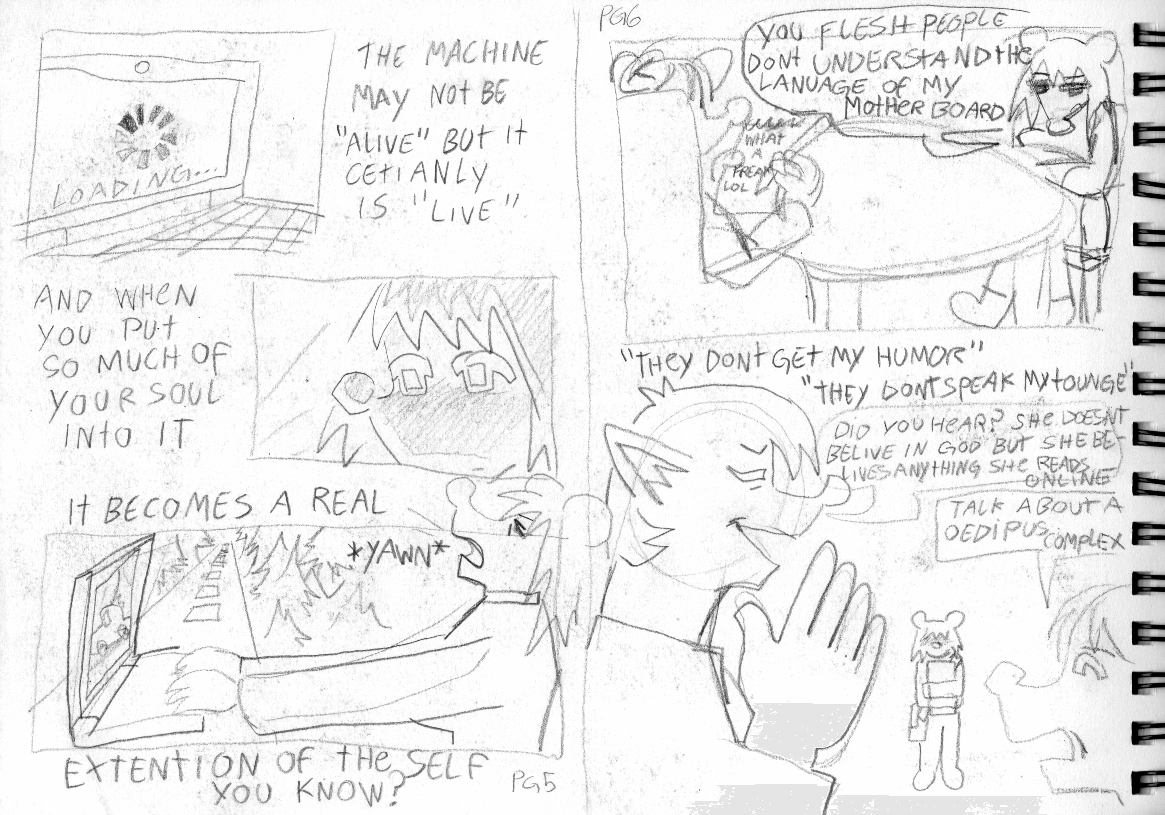 THE MACHINE
MAY NOT BE
"ALIVE" BUT IT
CETIANLY
IS "LIVE"
LOADING...
AND WHEN
YOU PUT
SO MUCH OF
YOUR SOUL
INTO IT
IT BECOMES A REAL
*YAWN*
EXTENTION OF THE SELF
YOU KNOW?
PG5
PG6
YOU FLESH PEOPLE
DONT UNDERSTAND THE
LANUAGE OF MY
MOTHER BOARD
WHAT
A
FREAK
LOL
"THEY DONT GET MY HUMOR"
"THEY DONT SPEAK MY TOUNGE"
DID YOU HEAR? SHE DOESNT
BELIVE IN GOD BUT SHE BE-
LIVES ANYTHING SHE READS
ONLINE
TALK ABOUT A
OEDIPUS COMPLEX